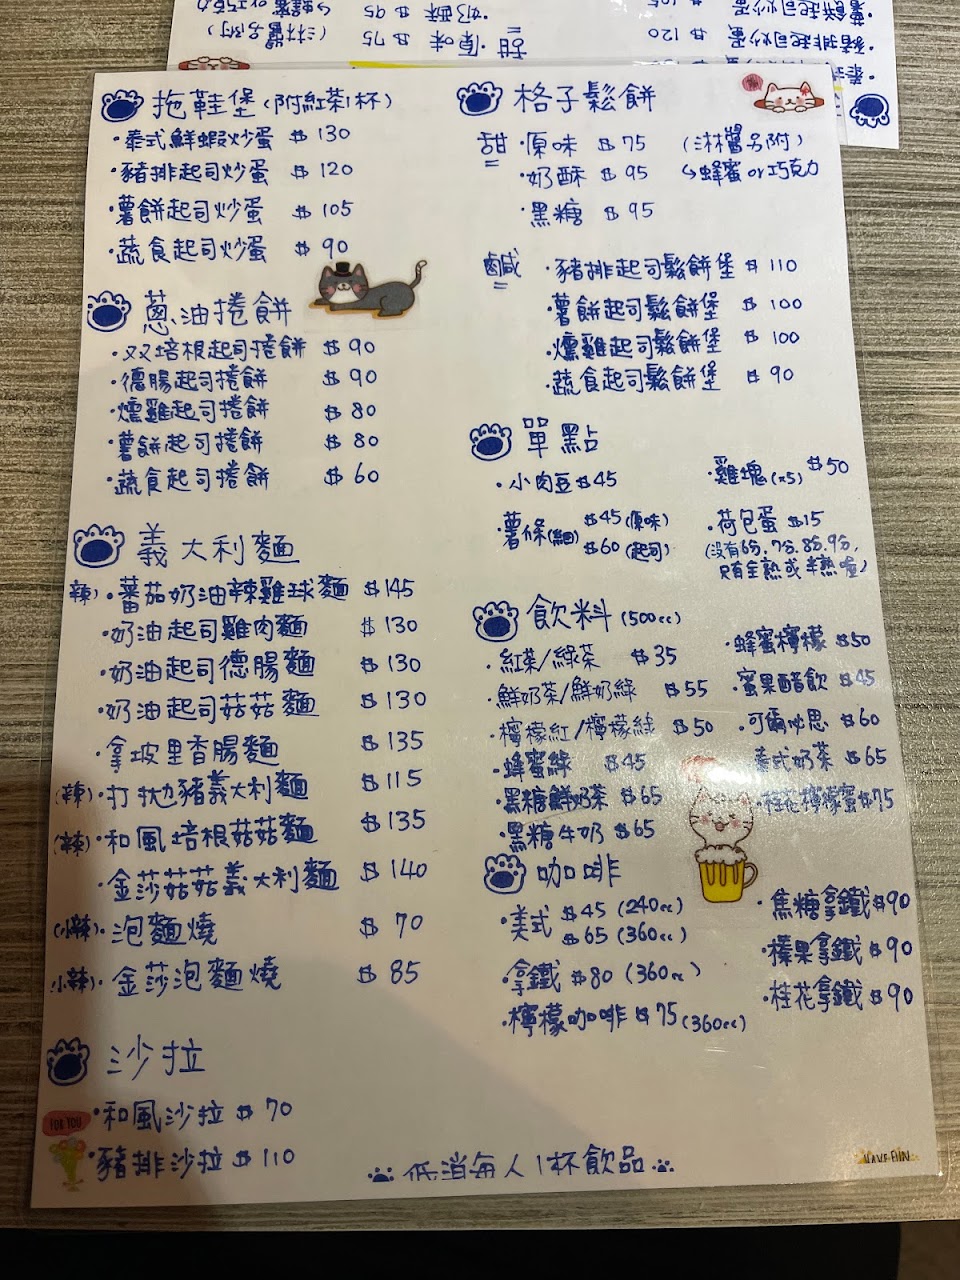 拖鞋堡(附紅茶1杯)
・泰式鮮蝦炒蛋 $130
・豬排起司炒蛋 $120
・薯餅起司炒蛋 $105
・蔬食起司炒蛋 $90
蔥油捲餅
・双培根起司捲餅 $90
・德腸起司捲餅 $90
・燻雞起司捲餅 $80
・薯餅起司捲餅 $80
・蔬食起司捲餅 $60
義大利麵
辣)・蕃茄奶油辣雞球麵 $145
・奶油起司雞肉麵 $130
・奶油起司德腸麵 $130
・奶油起司菇菇麵 $130
・拿坡里香腸麵 $135
(辣)・打拋豬義大利麵 $115
(辣)・和風培根菇菇麵 $135
・金莎菇菇義大利麵 $140
(小辣)・泡麵燒 $70
小辣)・金莎泡麵燒 $85
沙拉
FOR YOU
・和風沙拉 $70
・豬排沙拉 $110
格子鬆餅
甜・原味 $75 (淋醬另附)
・奶酥 $95 ↳蜂蜜or巧克力
・黑糖 $95
鹹・豬排起司鬆餅堡 $110
・薯餅起司鬆餅堡 $100
・燻雞起司鬆餅堡 $100
・蔬食起司鬆餅堡 $90
單點
・小肉豆 $45
・雞塊(x5) $50
・薯條(細) $45(原味)
$60(起司)
・荷包蛋 $15
(沒有6分.7分.8分.9分,
只有全熟或半熟喔)
飲料(500cc)
・紅茶/綠茶 $35
・鮮奶茶/鮮奶綠 $55
・檸檬紅/檸檬綠 $50
・蜂蜜綠 $45
・黑糖鮮奶茶 $65
・黑糖牛奶 $65
・蜂蜜檸檬 $50
・蜜果醋飲 $45
・可爾必思 $60
泰式奶茶 $65
・桂花檸檬蜜 $75
咖啡
・美式 $45(240cc)
$65(360cc)
・拿鐵 $80(360cc)
・檸檬咖啡 $75(360cc)
・焦糖拿鐵 $90
・榛果拿鐵 $90
・桂花拿鐵 $90
低消每人1杯飲品
HAVE FUN